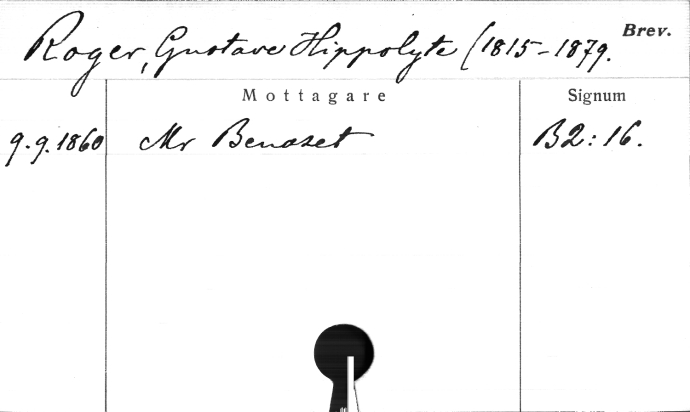 Roger, Gustave Hippolyte (1815-1879. Brev.
Mottagare Signum
9.9.1860 Mr Benazet B2:16.